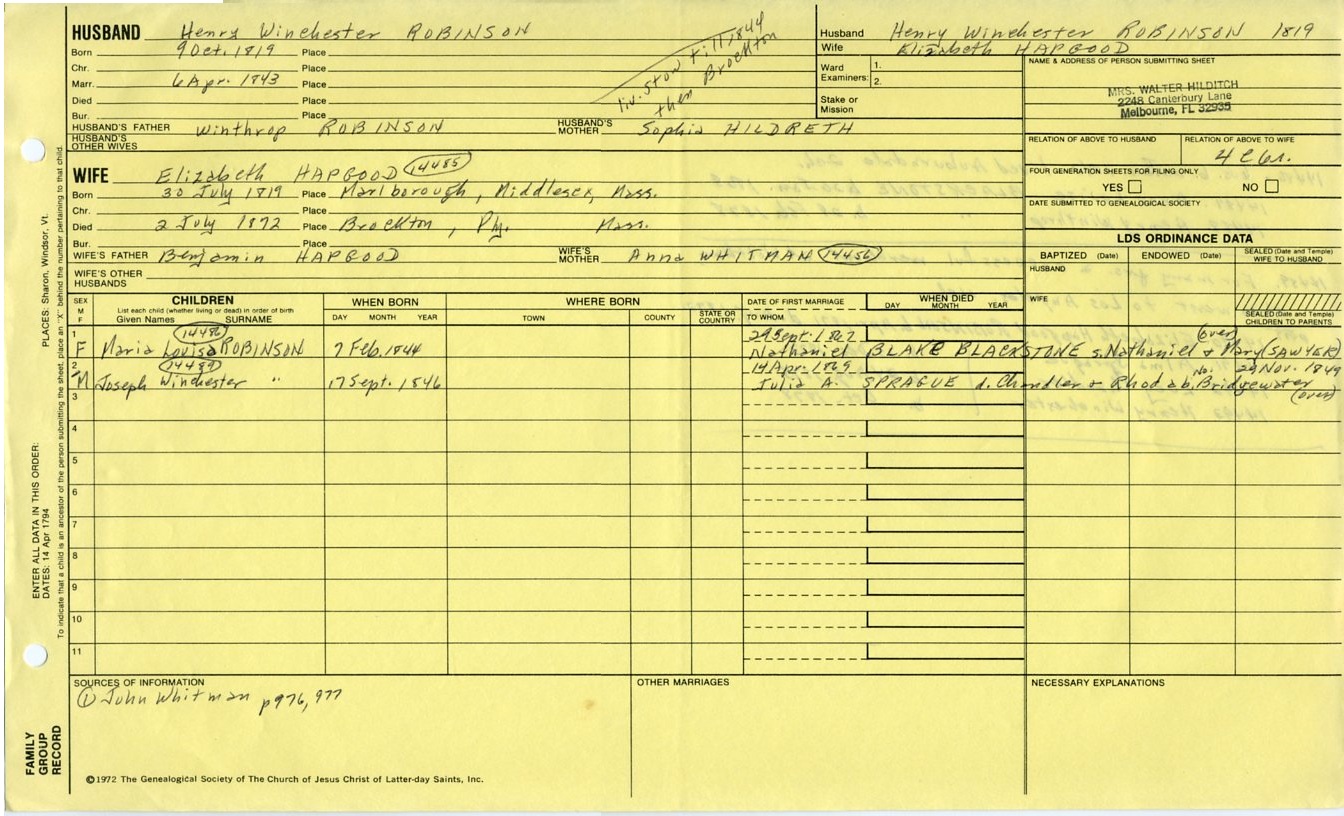 HUSBAND Henry Winchester ROBINSON
Born 9 Oct. 1819 Place
Chr. Place
Marr. 6 Apr. 1843 Place
Died Place
Bur. Place
liv. Stow till 1844
then Brockton
HUSBAND'S FATHER Winthrop ROBINSON HUSBAND'S MOTHER Sophia HILDRETH
HUSBAND'S OTHER WIVES
Husband Henry Winchester ROBINSON 1819
Wife Elizabeth HAPGOOD
Ward 1.
Examiners: 2.
Stake or Mission
NAME & ADDRESS OF PERSON SUBMITTING SHEET
MRS. WALTER HILDITCH
2248 Canterbury Lane
Melbourne, FL 32935
RELATION OF ABOVE TO HUSBAND RELATION OF ABOVE TO WIFE
FOUR GENERATION SHEETS FOR FILING ONLY
YES NO
DATE SUBMITTED TO GENEALOGICAL SOCIETY
WIFE Elizabeth HAPGOOD 14485
Born 30 July 1819 Place Marlborough, Middlesex, Mass.
Chr. Place
Died 2 July 1872 Place Brockton, Ply. Mass.
Bur. Place
WIFE'S FATHER Benjamin HAPGOOD WIFE'S MOTHER Anna WHITMAN 14456
WIFE'S OTHER HUSBANDS
LDS ORDINANCE DATA
BAPTIZED (Date) ENDOWED (Date) SEALED (Date and Temple) WIFE TO HUSBAND
HUSBAND
WIFE
SEALED (Date and Temple) CHILDREN TO PARENTS
SEX M F
CHILDREN
List each child (whether living or dead) in order of birth
Given Names SURNAME
WHEN BORN
DAY MONTH YEAR
WHERE BORN
TOWN COUNTY STATE OR COUNTRY
DATE OF FIRST MARRIAGE
TO WHOM
WHEN DIED
DAY MONTH YEAR
1 14486 (over)
F Maria Louisa ROBINSON 7 Feb. 1844 Nathaniel BLAKE BLACKSTONE s. Nathaniel & Mary (SAWYER)
2 14489 14 Apr. 1869 No. 29 Nov. 1849
M Joseph Winchester " 17 Sept. 1846 Julia A. SPRAGUE d. Chandler & Rhoda b. Bridgewater
(over)
3
4
5
6
7
8
9
10
11
SOURCES OF INFORMATION
① John Whitman p976, 977
OTHER MARRIAGES
NECESSARY EXPLANATIONS
©1972 The Genealogical Society of The Church of Jesus Christ of Latter-day Saints, Inc.
FAMILY GROUP RECORD
ENTER ALL DATA IN THIS ORDER:
DATES: 14 Apr 1794
PLACES: Sharon, Windsor, Vt.
To indicate that a child is an ancestor of the person submitting the sheet, place an "X" behind the number pertaining to that child.